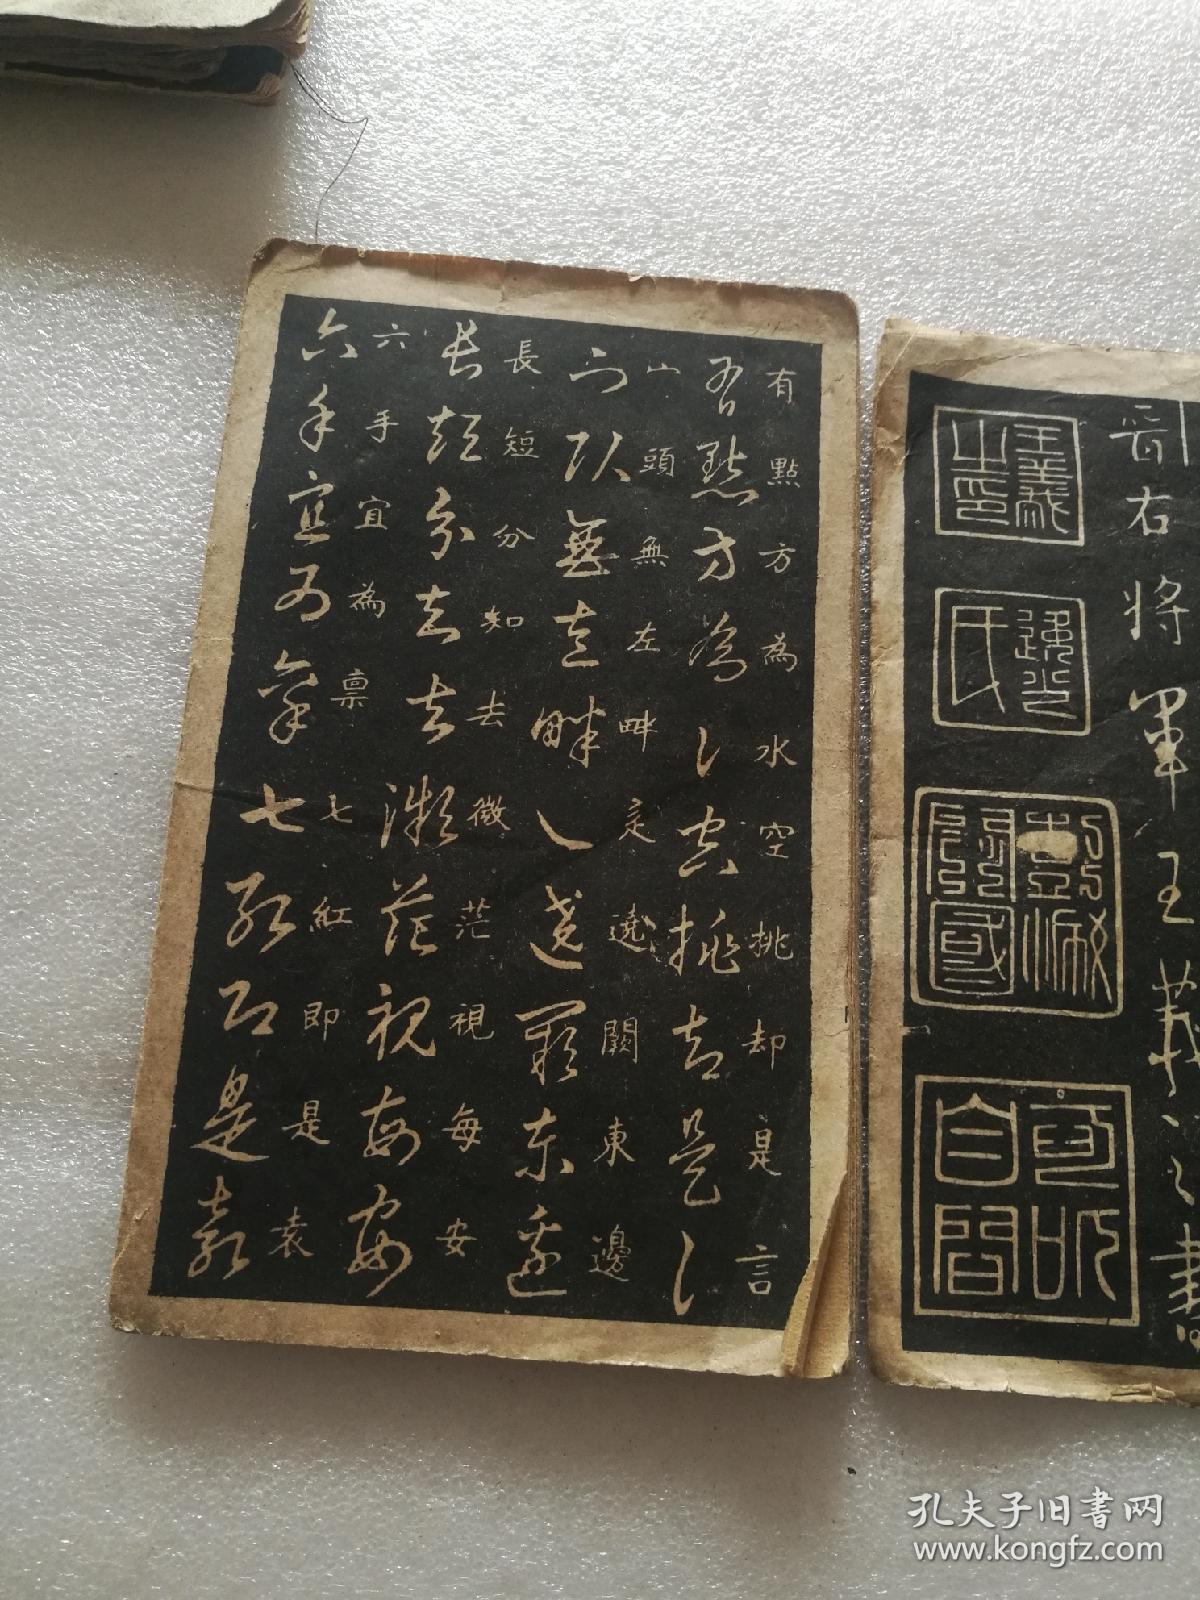 有點方為水空挑却是言
有點方為氵空挑却是言
山頭無左畔辵遶闕東邊
山頭無左畔辵遶闕東邊
長短分知去微茫視每安
長短分知去微茫視每安
六手宜為稟七紅即是袁
六手宜為稟七紅即是袁
晉右將軍王羲之書
王羲之印
孔夫子旧书网
www.kongfz.com